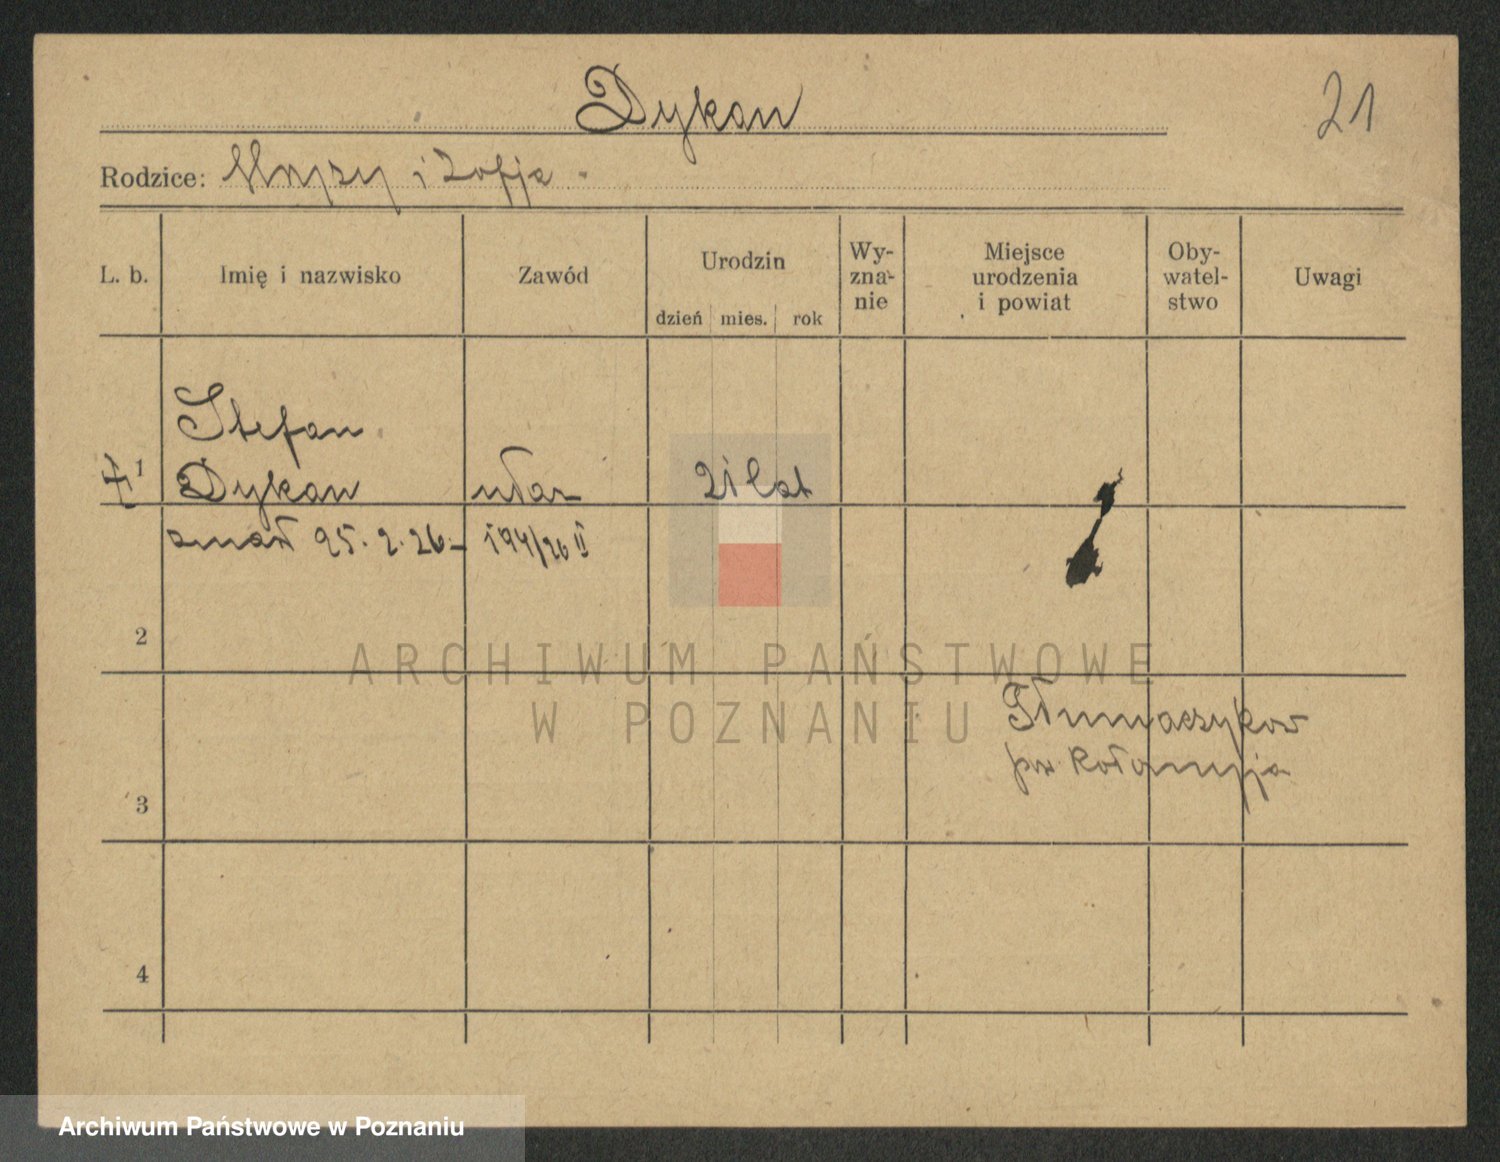 Dykan
21
Rodzice: i Zofja
L. b. Imię i nazwisko Zawód Urodzin dzień mies. rok Wy-znanie Miejsce urodzenia i powiat Oby-watel-stwo Uwagi
1 Stefan
Dykan ułan 21 lat
zmarł 25.2.26.- 194/26 II
2
Tłumaczykow
pow Kołomyja
3
4
ARCHIWUM PAŃSTWOWE
W POZNANIU
Archiwum Państwowe w Poznaniu